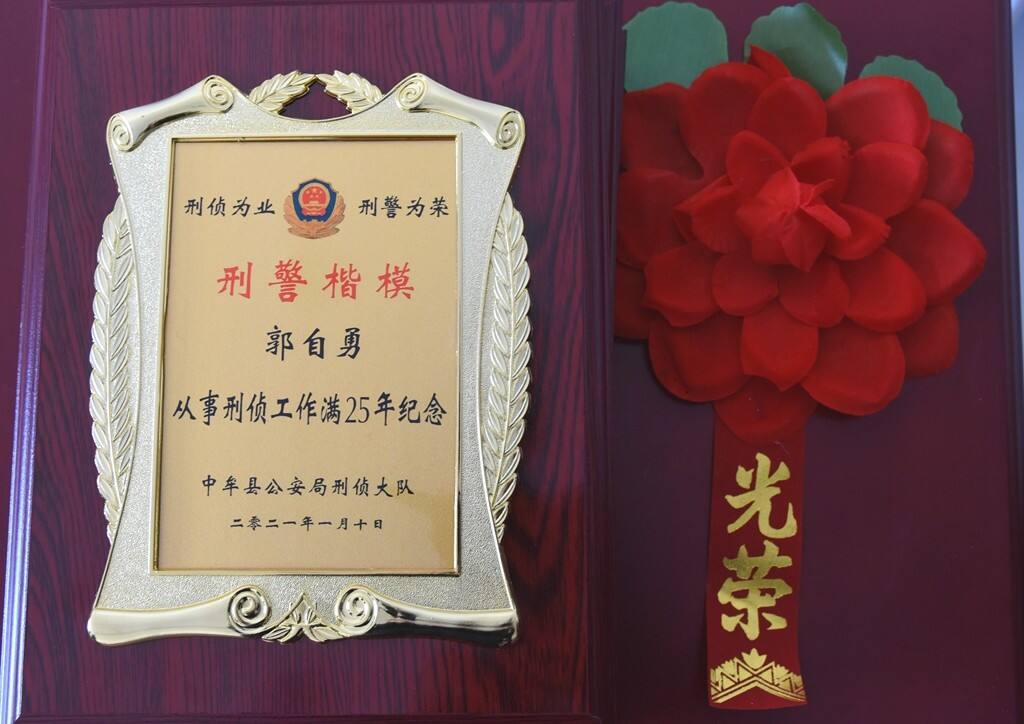 刑侦为业 刑警为荣
刑警楷模
郭自勇
从事刑侦工作满25年纪念
中牟县公安局刑侦大队
二零二一年一月十日
光荣